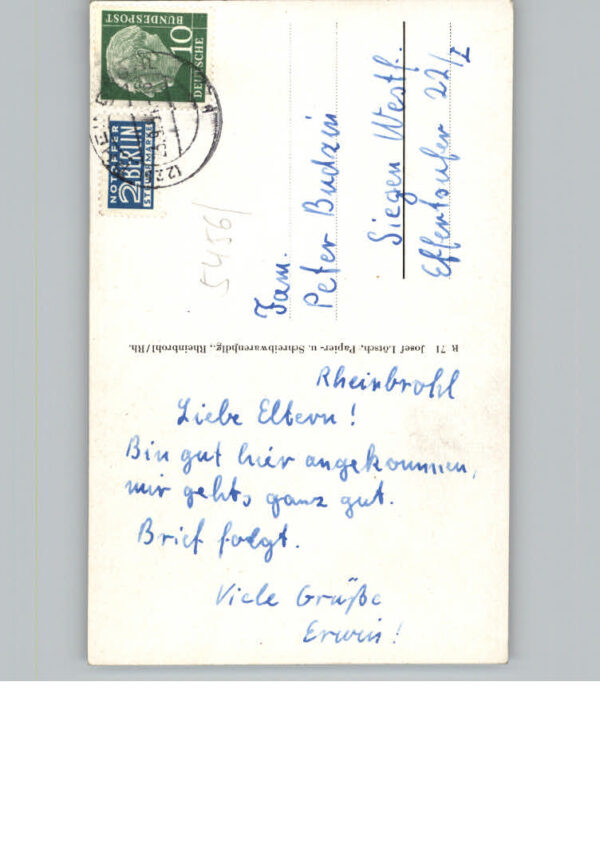 10
DEUTSCHE
BUNDESPOST
NOTOPFER
2 BERLIN
STEUERMARKE
5456/
Fam.
Peter Budzin
Siegen Westf.
Effertsufer 22/I
R 71 Josef Lötsch, Papier- u. Schreibwarenhdlg., Rheinbrohl/Rh.
Rheinbrohl
Liebe Eltern!
Bin gut hier angekommen,
mir gehts ganz gut.
Brief folgt.
Viele Grüße
Erwin!